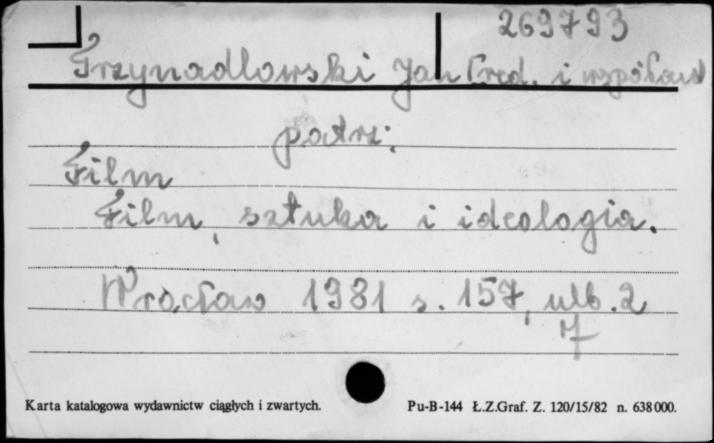 269793
Trzynadlowski Jan (red. i współaut
patrz:
Film
Film, sztuka i ideologia.
Wrocław 1981 s. 157, ulb. 2
7
Karta katalogowa wydawnictw ciągłych i zwartych. Pu-B-144 Ł.Z.Graf. Z. 120/15/82 n. 638000.